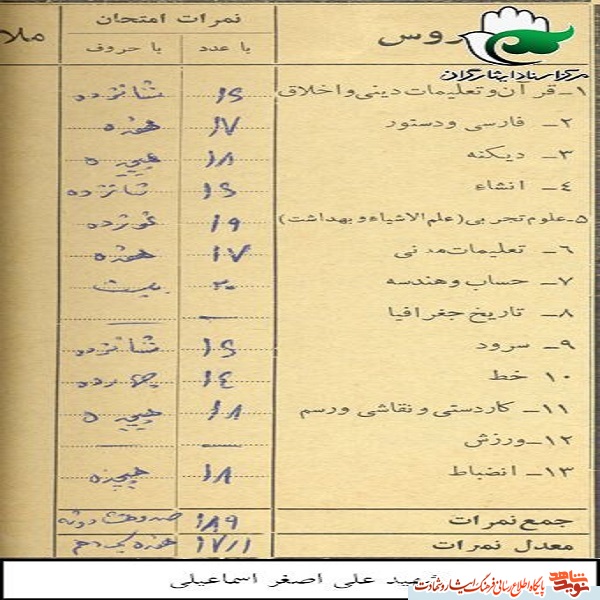 نمرات امتحان
ملا
روس
با عدد
با حروف
مرکز اسناد ایثارگران
۱ـ قرآن و تعلیمات دینی و اخلاق ۱۶ شانزده
۲ـ فارسی و دستور ۱۷ هفده
۳ـ دیکته ۱۸ هیجده
۴ـ انشاء ۱۶ شانزده
۵ـ علوم تجربی (علم الاشیاء و بهداشت) ۱۹ نوزده
۶ـ تعلیمات مدنی ۱۷ هفده
۷ـ حساب و هندسه ۲۰ بیست
۸ـ تاریخ جغرافیا — —
۹ـ سرود ۱۶ شانزده
۱۰ـ خط ۱۴ چهارده
۱۱ـ کاردستی و نقاشی و رسم ۱۸ هیجده
۱۲ـ ورزش — —
۱۳ـ انضباط ۱۸ هیجده
جمع نمرات ۱۸۹
معدل نمرات ۱۷/۱
شهید علی اصغر اسماعیلی
پایگاه اطلاع رسانی فرهنگ ایثار و شهادت
نوید شاهد